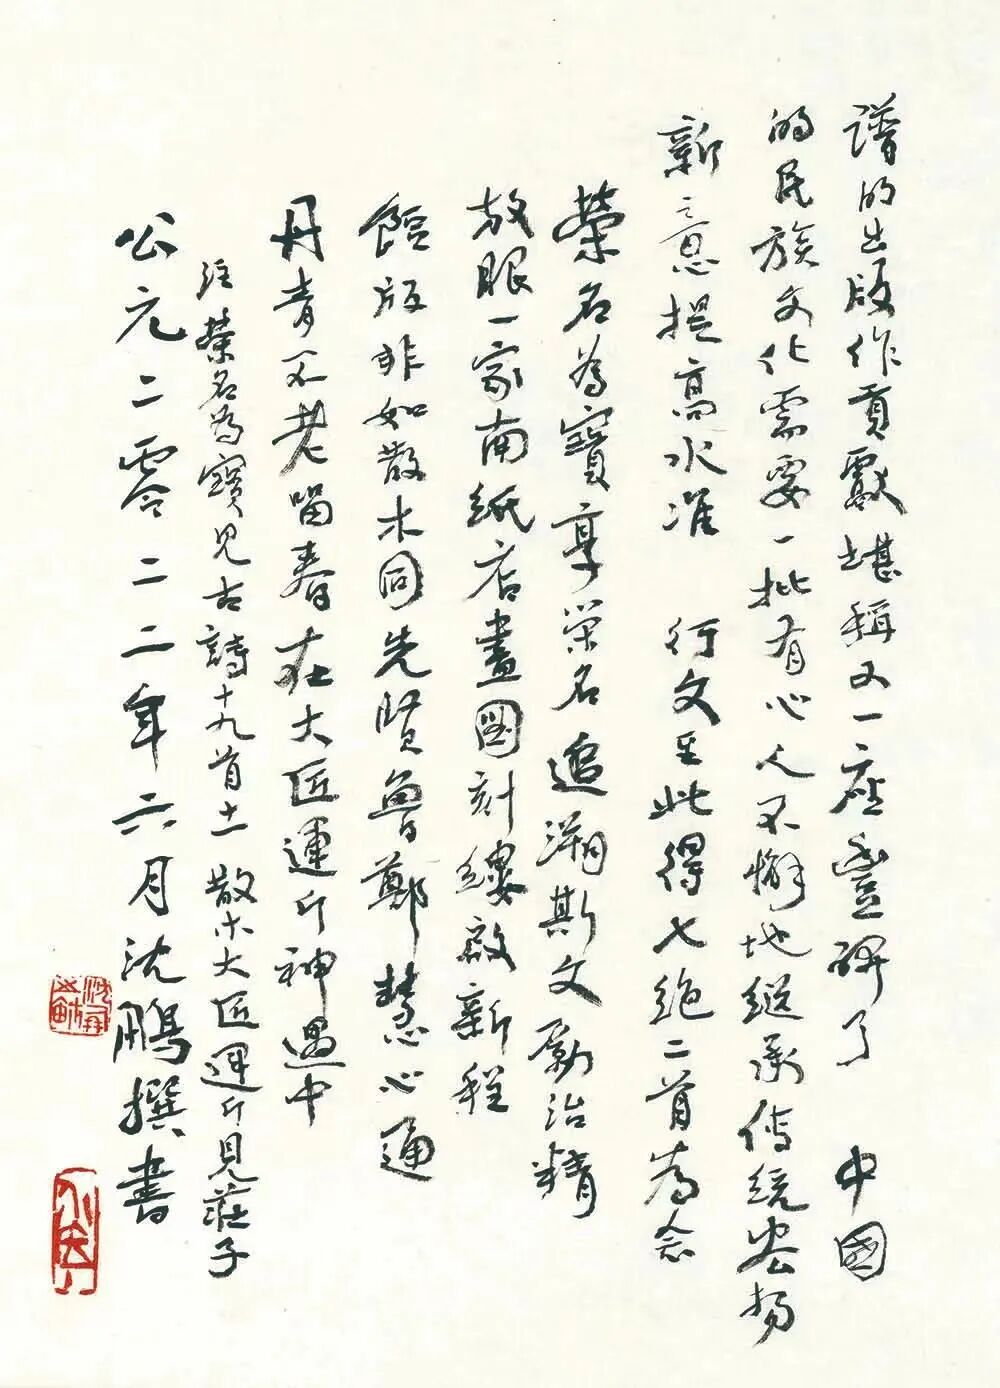 譜的出版作貢獻堪稱又一座豐碑了 中國
的民族文化需要一批有心人不懈地继承传統宏扬
新意提高水准 行文至此得七絕二首為念
榮名為寶享荣名追溯斯文勵治精
放眼一家南紙店畫圖刻鏤啟新程
餖版非如散木同先賢魯鄭慧心通
丹青不老留春在大匠運斤神遇中
注榮名為寶見古詩十九首十一 散木大匠運斤見莊子
公元二零二二年六月沈鵬撰書